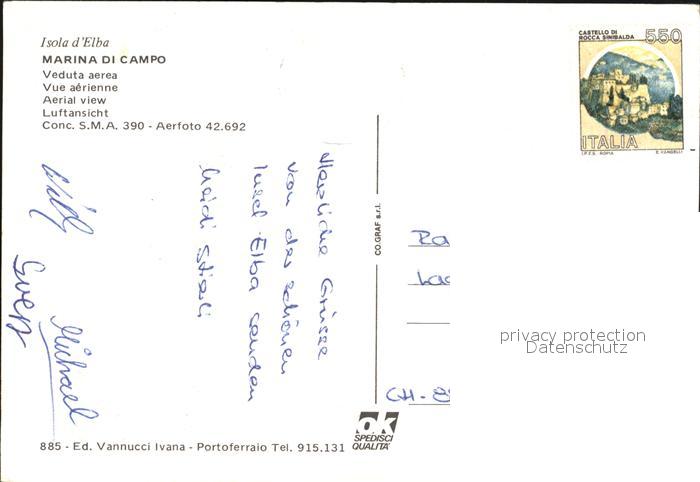 Isola d'Elba
MARINA DI CAMPO
Veduta aerea
Vue aérienne
Aerial view
Luftansicht
Conc. S.M.A. 390 - Aerfoto 42.692
CASTELLO DI
ROCCA SINIBALDA
550
ITALIA
I.P.Z.S. ROMA
E. VANGELLI
Herzliche Grüsse
von der schönen
Insel Elba senden
Heidi
Willy
Michael
CO.GRAF s.r.l.
CH-8
privacy protection
Datenschutz
ok
SPEDISCI
QUALITA'
885 - Ed. Vannucci Ivana - Portoferraio Tel. 915.131